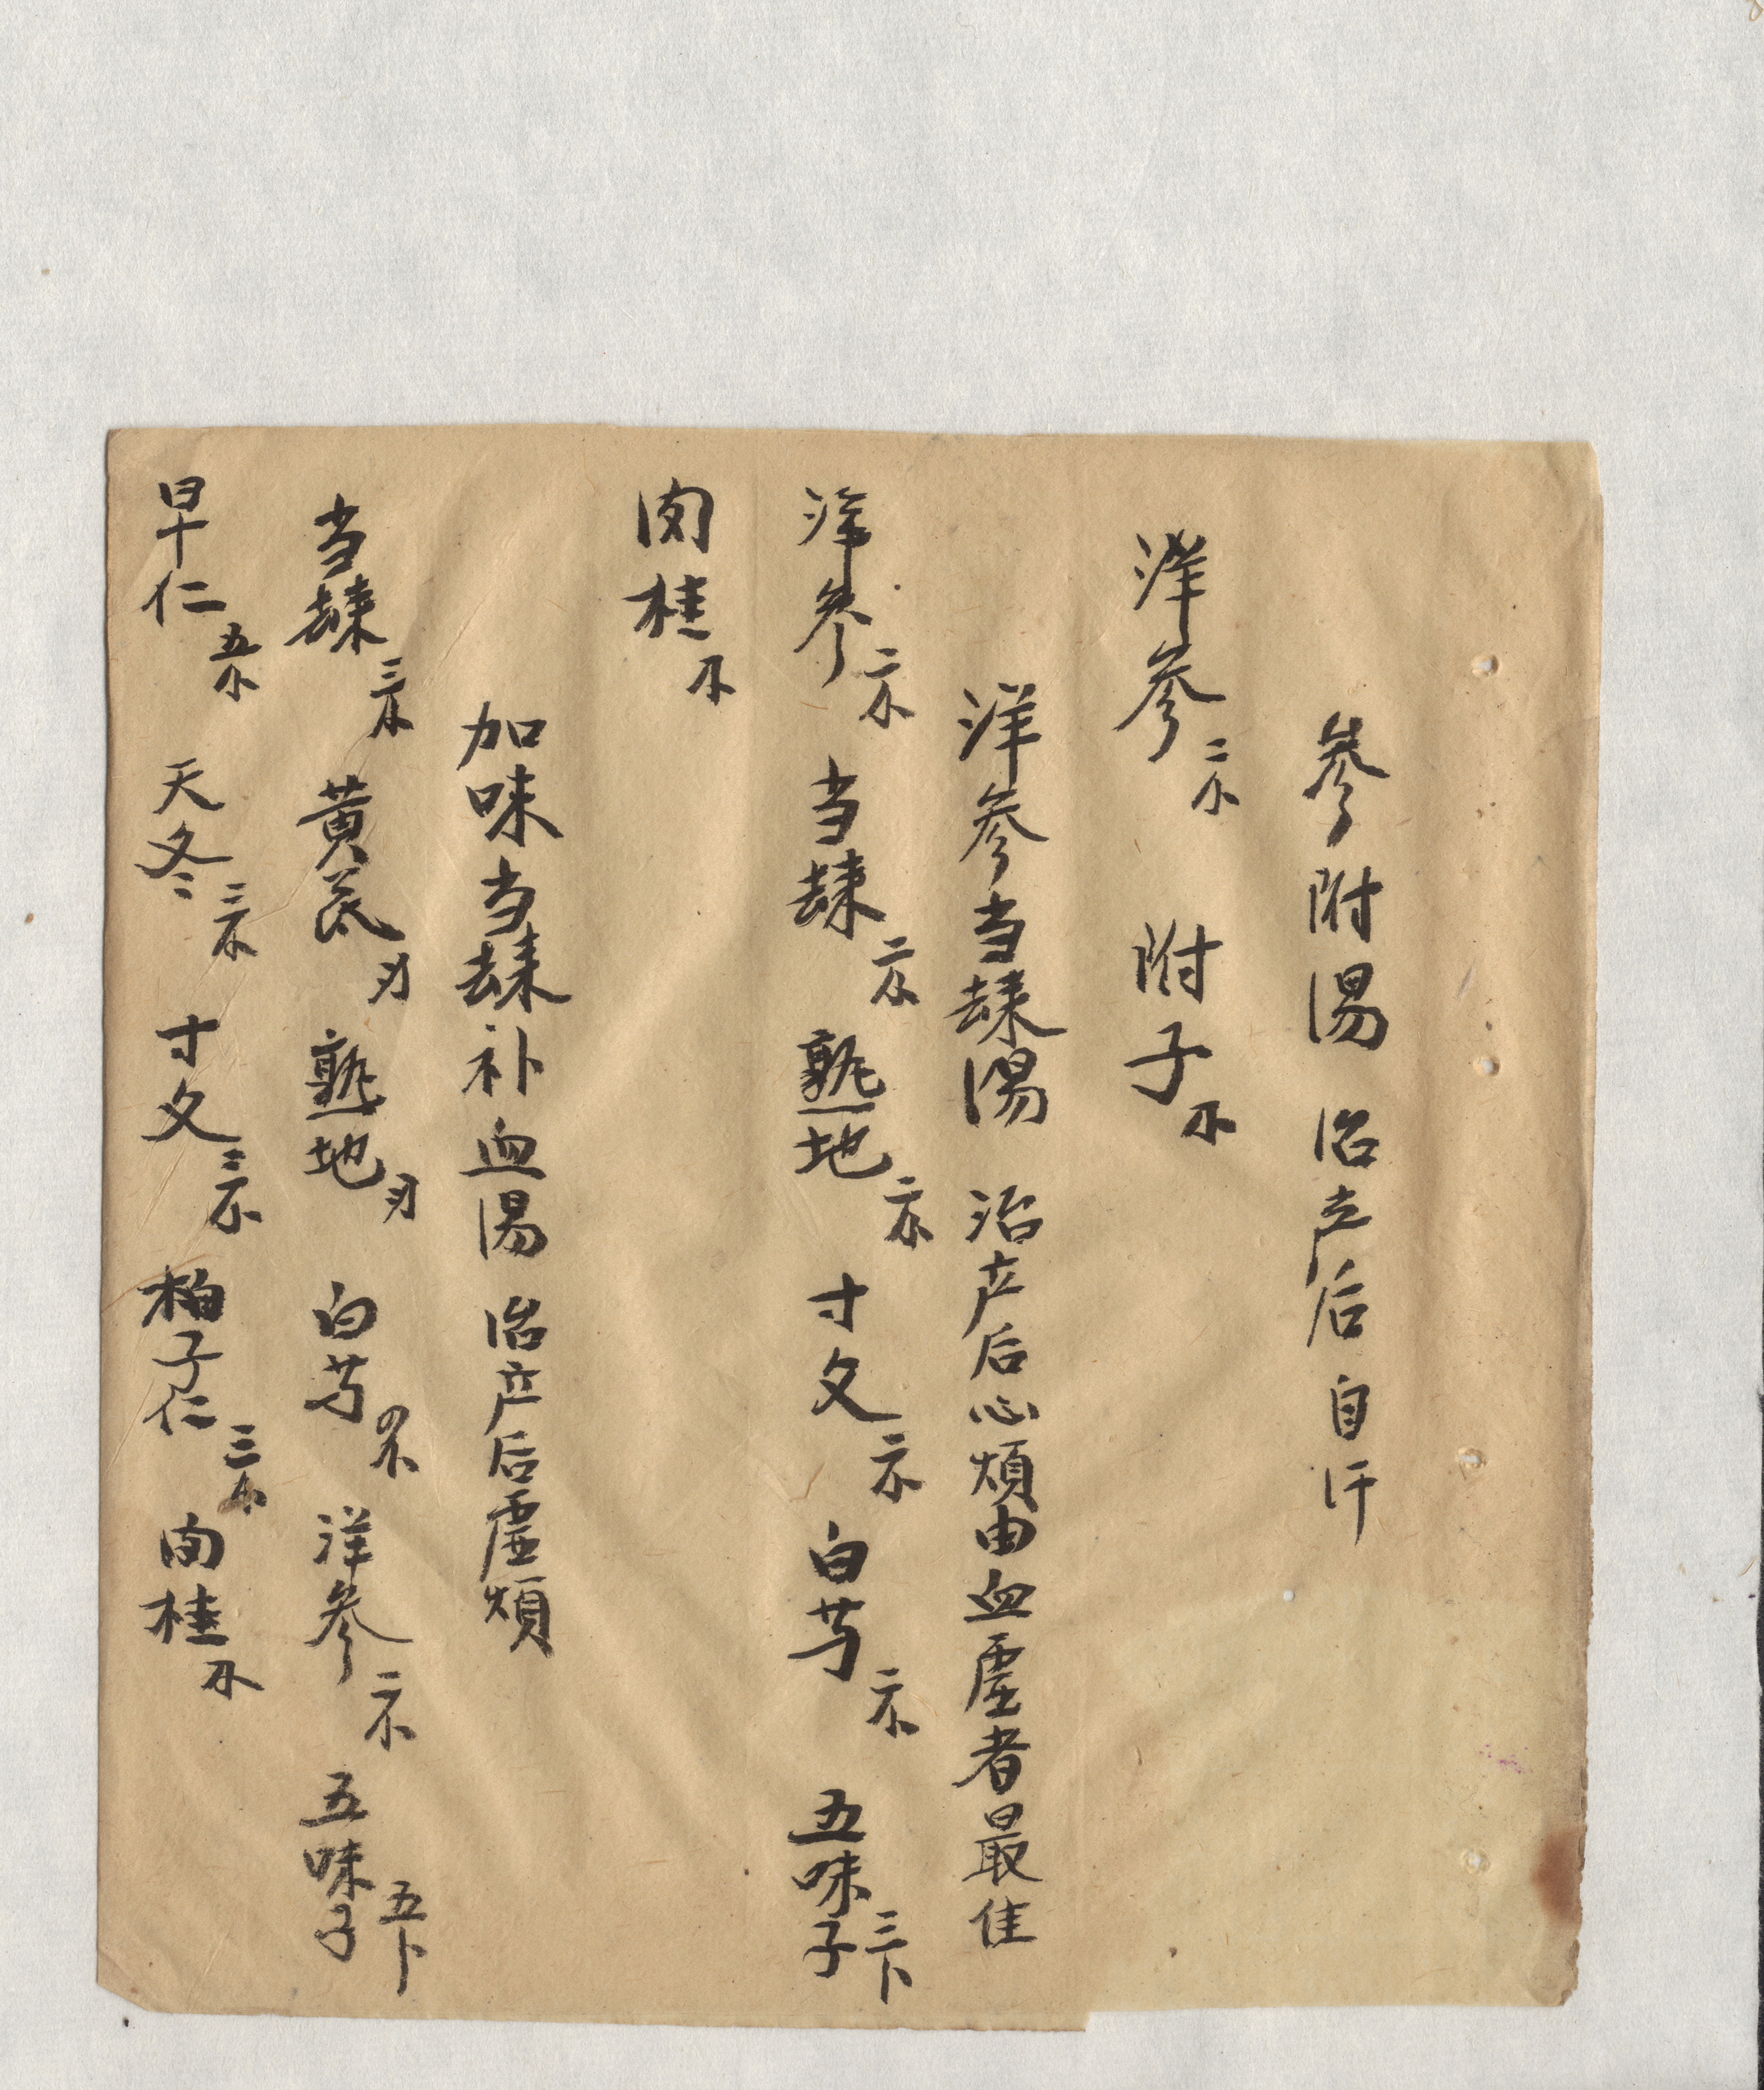 参附湯 治产后自汗
洋参二不 附子不
洋参当隷湯 治产后心煩由血虛者最佳
洋参二不 当隷二不 熟地二不 寸文二不 白芍二不 五味子三卜
肉桂不
加味当隷补血湯 治产后虛煩
当隷三不 黄芪刃 熟地刃 白芍不 洋参二不 五味子五卜
早仁五不 天冬三不 寸文三不 柏子仁三不 肉桂不